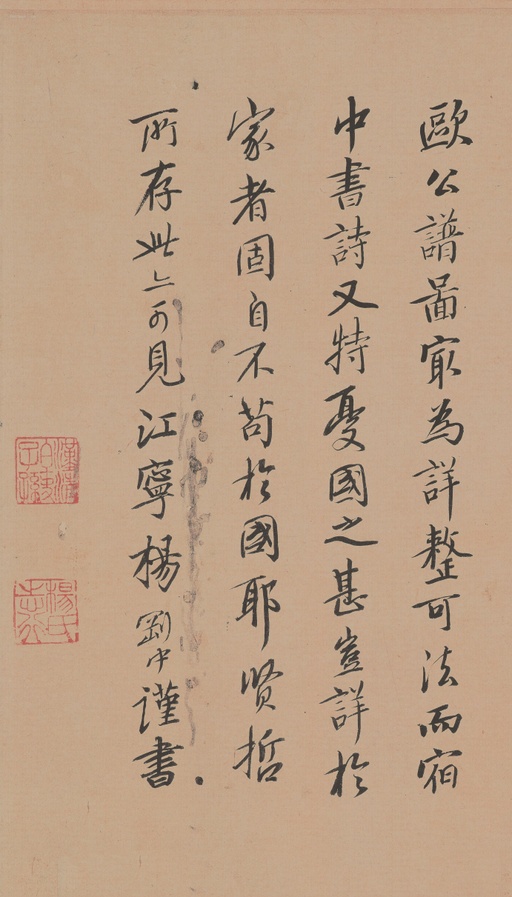 歐公譜啚㝡為詳整可法而宿
中書詩又特憂國之甚豈詳於
家者固自不苟於國耶賢哲
所存此亦可見江寧楊剛中謹書
楊氏志行